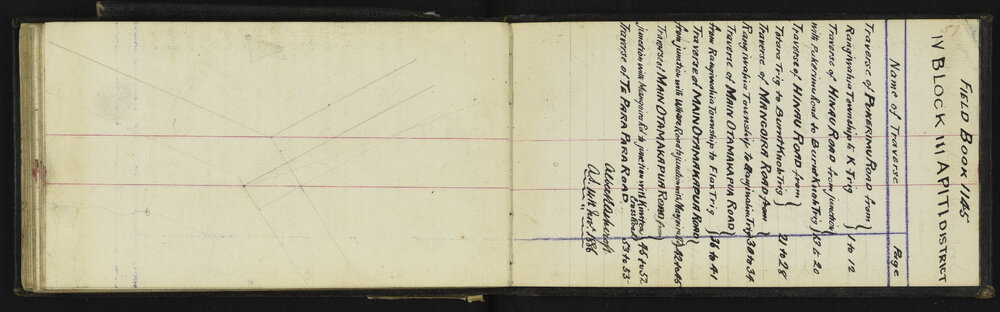 FIELD BOOK 1145
IV BLOCK III APITI DISTRICT
Name of Traverse Page
Traverse of PUKERIMU ROAD from
Rangiwahia Township to K Trig } 1 to 12
Traverse of HINAU ROAD from junction
with Pukerimu Road to Burnt Knob Trig } 13 to 20
Traverse of HINAU ROAD from
Totara Trig to Burnt Knob Trig } 21 to 28
Traverse of MANGOIRA ROAD from
Rangiwahia Township to Rangiwahia Trig } 30 to 34
Traverse of MAIN OTAMAKAPUA ROAD
from Rangiwahia Township to Flax Trig } 36 to 41
Traverse of MAIN OTAMAKAPUA ROAD
from junction with Road to junction with Mangoira Rd } 42 to 45
Traverse of MAIN OTAMAKAPUA ROAD from
junction with Mangoira Rd to junction with Kimbolton } 46 to 52
Traverse of TE PARA PARA ROAD 53 to 55
1886